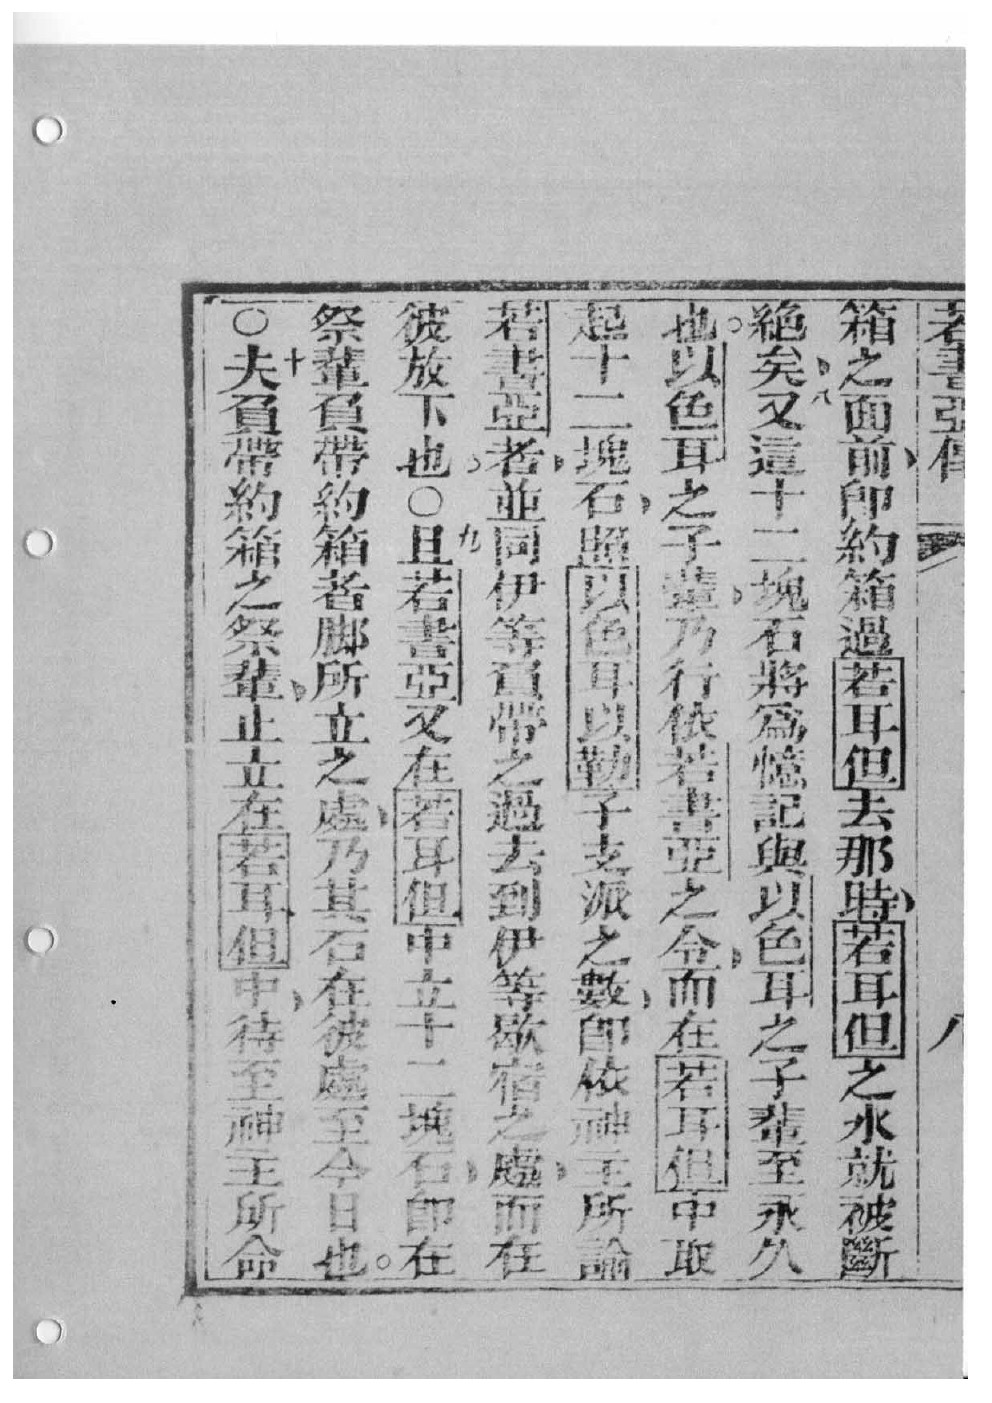 若書亞傳 八
箱之面前、即約箱過若耳但去那時、若耳但之水就被斷
絕矣、八又這十二塊石將為憶記與以色耳之子輩至永久
也。以色耳之子輩、乃行依若書亞之令、而在若耳但中取
起十二塊石、照以色耳以勒子支派之數、即依神主所論
若書亞者、並同伊等負帶之過去到伊等歇宿之處、而在
彼放下也。○九且若書亞又在若耳但中立十二塊石、即在
祭輩負帶約箱者脚所立之處、乃其石在彼處至今日也。
○十夫負帶約箱之祭輩、止立在若耳但中、待至神主所命